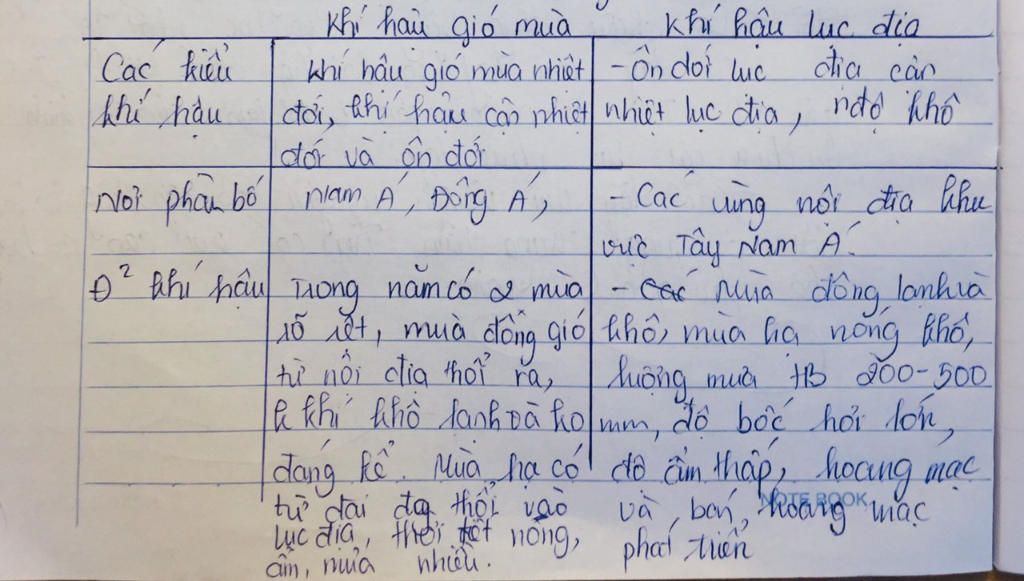 Khí hậu gió mùa
Khí hậu lục địa
Các kiểu
khí hậu
khí hậu gió mùa nhiệt
đới, khí hậu cận nhiệt
đới và ôn đới
- Ôn đới lục địa cận
nhiệt lục địa, nđộ khô
Nơi phân bố
Nam Á, Đông Á,
- Các vùng nội địa khu
vực Tây Nam Á.
Đ² khí hậu
Trong năm có 2 mùa
rõ rệt, mùa đông gió
từ nội địa thổi ra,
k khí khô lạnh và ko
đáng kể. Mùa hạ có
từ đại dg thổi vào
lục địa, thời tiết nóng,
ẩm, mưa nhiều.
- Mùa đông lạnh và
khô, mùa hạ nóng khô,
lượng mưa TB 200-500
mm, độ bốc hơi lớn,
độ ẩm thấp, hoang mạc
và bán hoang mạc
phát triển
NOTE BOOK